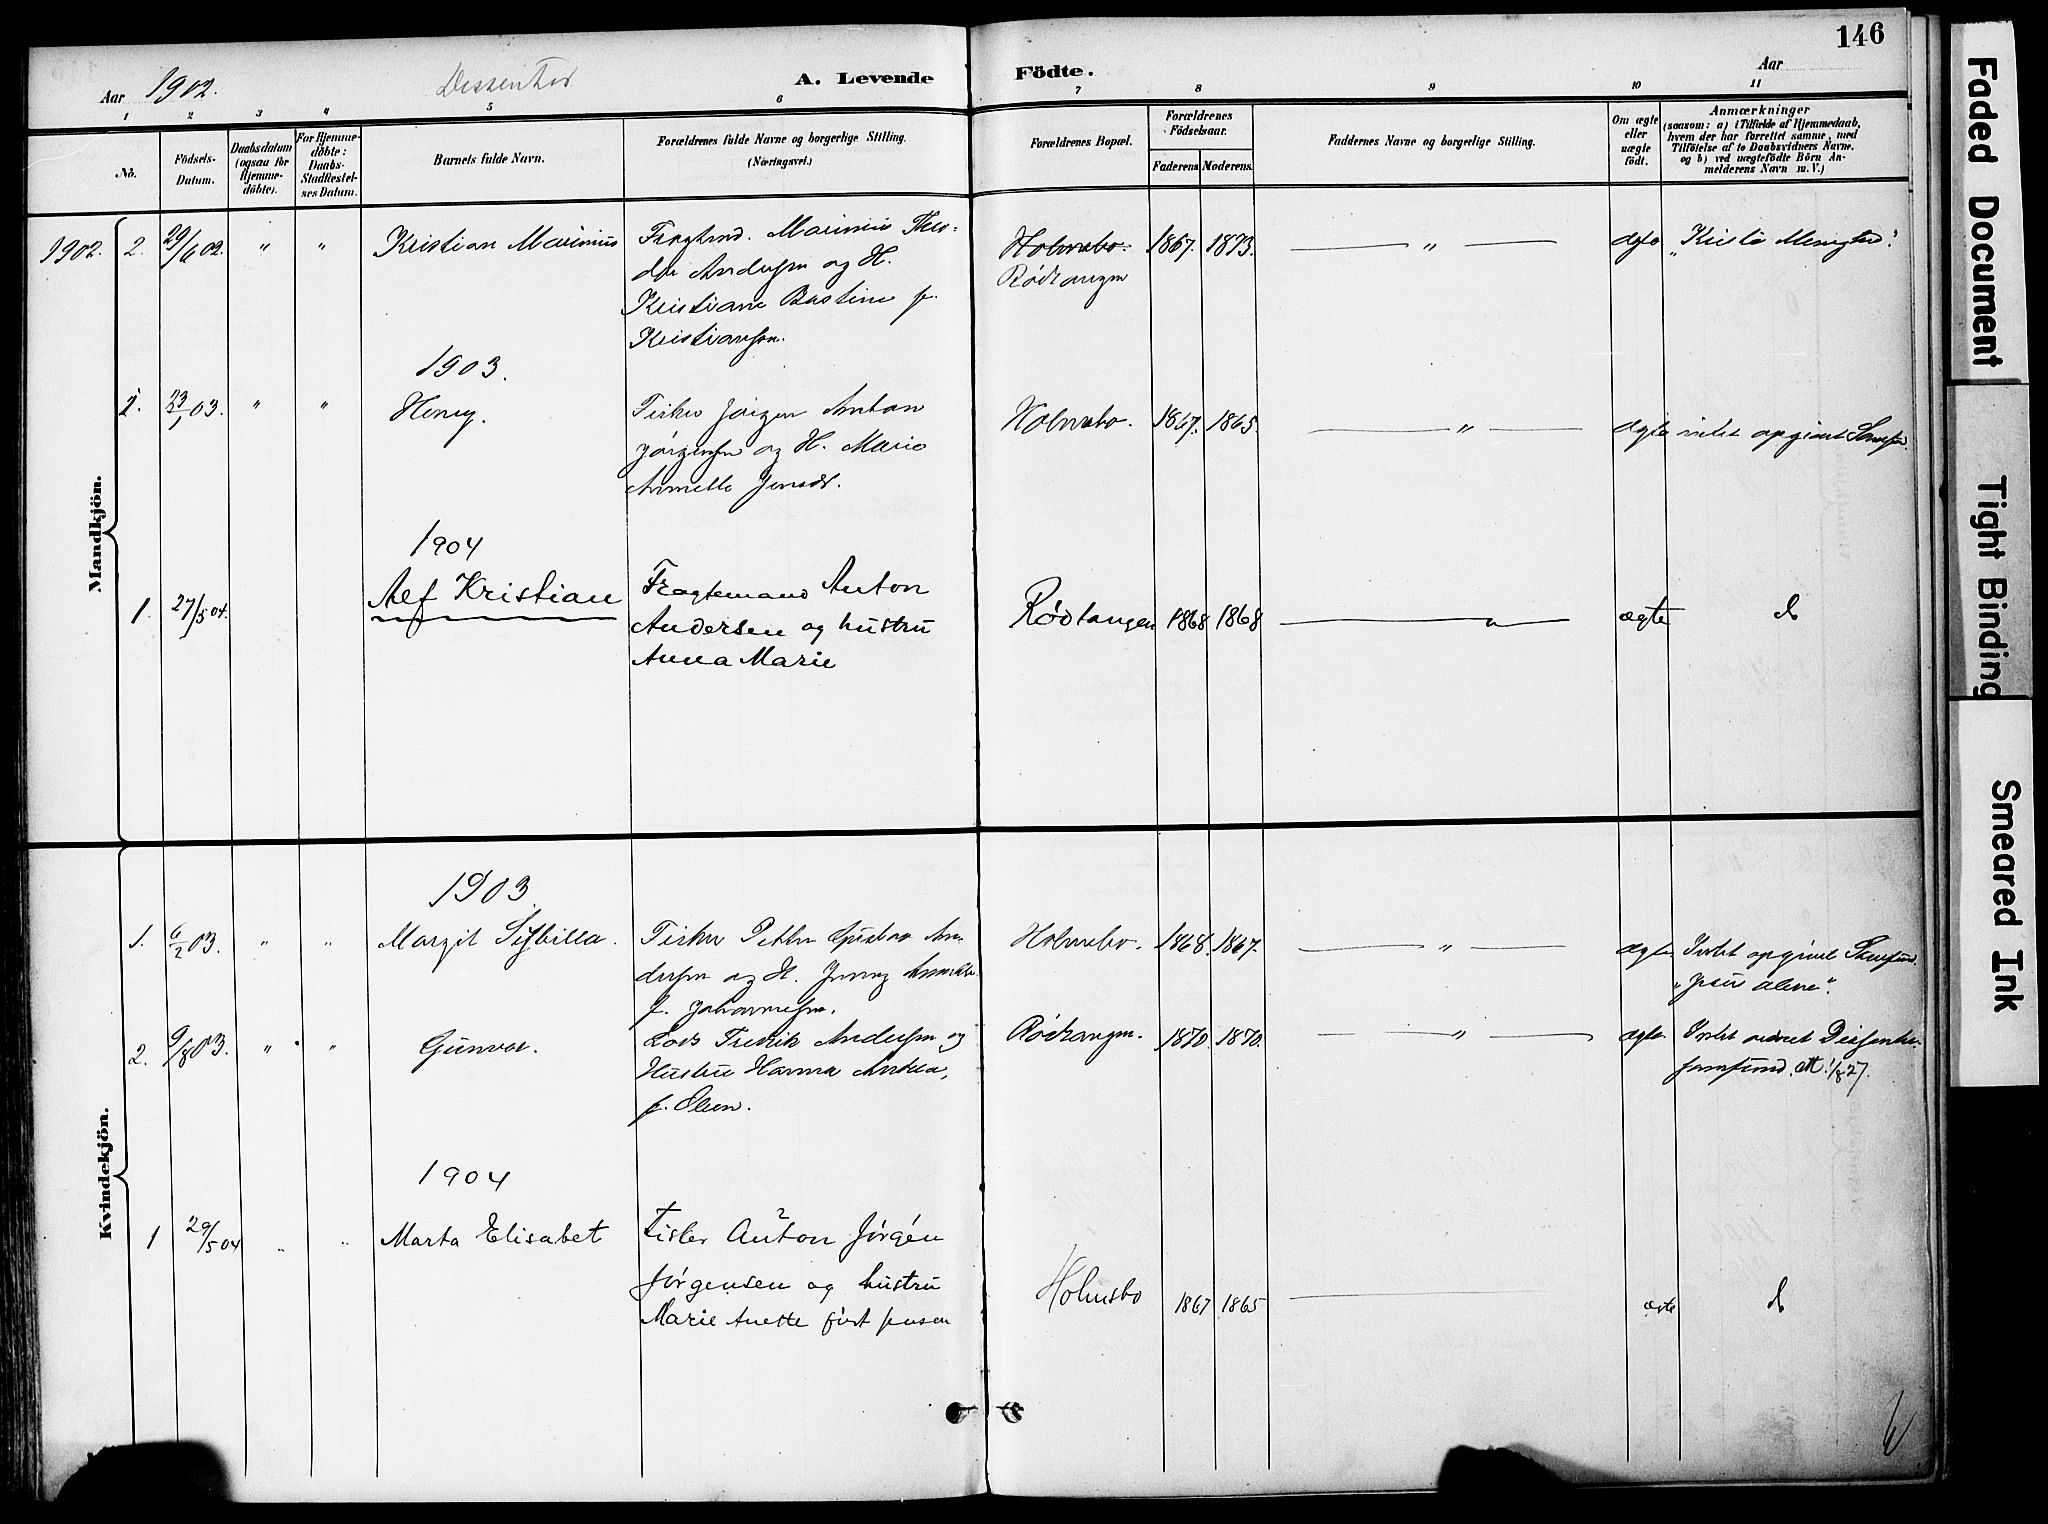 146
Aar 1902. Dissenter A. Levende Födte. Aar
1 2 3 4 5 6 7 8 9 10 11
No.
Födsels-Datum.
Daabsdatum (ogsaa for Hjemmedöbte).
For Hjemmedöbte: Daabs-Stadfestelses Datum.
Barnets fulde Navn.
Forældrenes fulde Navne og borgerlige Stilling.
(Næringsvei.)
Forældrenes Bopæl.
Forældrenes Födselsaar.
Faderens. Moderens.
Faddernes Navne og borgerlige Stilling.
Om ægte eller uægte födt.
Anmærkninger
(saasom: a) i Tilfælde af Hjemmedaab,
hvem der har forrettet samme, med
Tilföielse af to Daabsvidners Navne.
og b) ved uægtefödte Börn An-
melderens Navn m. V.)
Mandkjön.
1902. 2. 29/6 02. " " Kristian Marinius Fragtmd. Marinius Theo-
dor Andersen og H.
Kristiane Bastine f.
Kristiansen.
Holmsbo.
Rødtangen
1867. 1873. " ægte "Kristi Menighed".
1903.
1. 23/1 03. " " Henry. Fisker Jørgen Anton
Jørgensen og H. Marie
Annette Jensdt.
Holmsbo. 1867. 1865. " ægte intet opgivet Samfund.
1904
1. 27/5 04. Alf Kristian Fragtemand Anton
Andersen og hustru
Anna Marie
Rødtangen 1868 1868 " ægte do
Kvindekjön.
1903.
1. 6/2 03. " " Margit Sifbilla. Fisker Petter Gustav An-
dersen og H. Jenny
f. Johannesen.
Holmsbo. 1868. 1867. " ægte. Intet opgivet Samfund.
"Jesus alene".
2. 9/8 03. " " Gunvor. Lods Fredrik Andersen og
Hustru Hanna Andrea,
f. Olsen.
Rødtangen. 1870. 1870. " ægte. Intet ordnet Dissenter-
samfund. Att. 1/8 27.
1904
1 29/5 04 " " Marta Elisabet Fisker Anton Jørgen
Jørgensen og hustru
Marie Anette født Jensen
Holmsbo 1867 1865 ægte do
Faded Document
Tight Binding
Smeared Ink